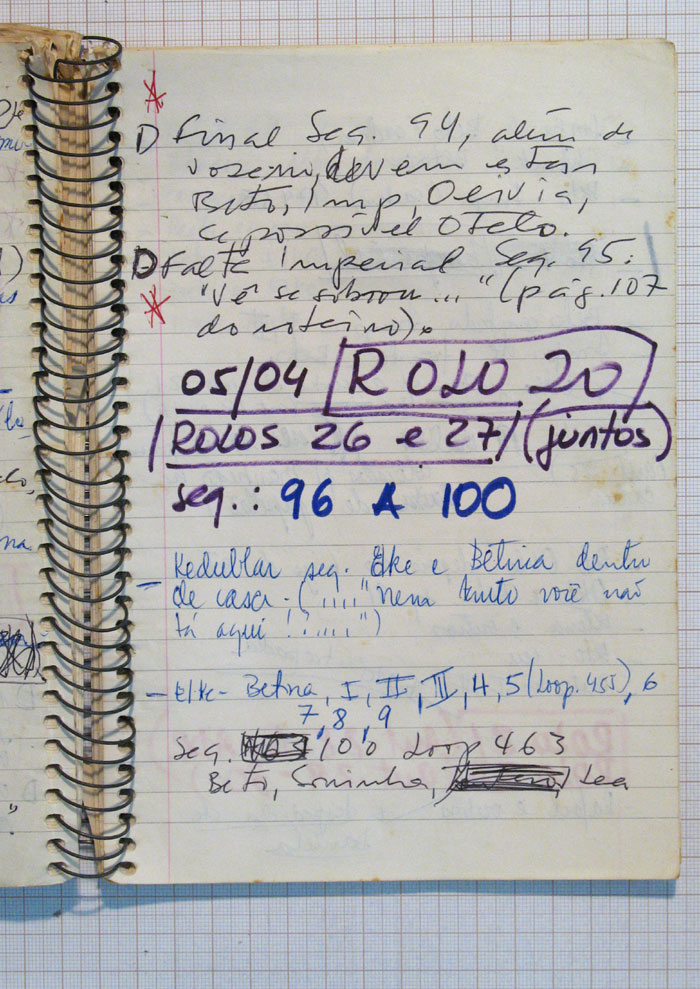 D Final Seq. 94, além de
vozerio, devem estar
Beto, Imp, Oeivia,
se possível Otelo.
D Falta Imperial Seq. 95:
"Vê se sobrou..." (pág. 107
do roteiro).
05/04 ROLO 20
ROLOS 26 e 27 (juntos)
seq.: 96 A 100
- Redublar seq. Elke e Betina dentro
de casa. (",,,,"nena Truto você não
tá aqui!?....")
- Elke - Betina, I, II, III, 4, 5 (Loop. 455), 6
7, 8, 9
Seq. 100 Loop 463
Beto, Soninha, Lea